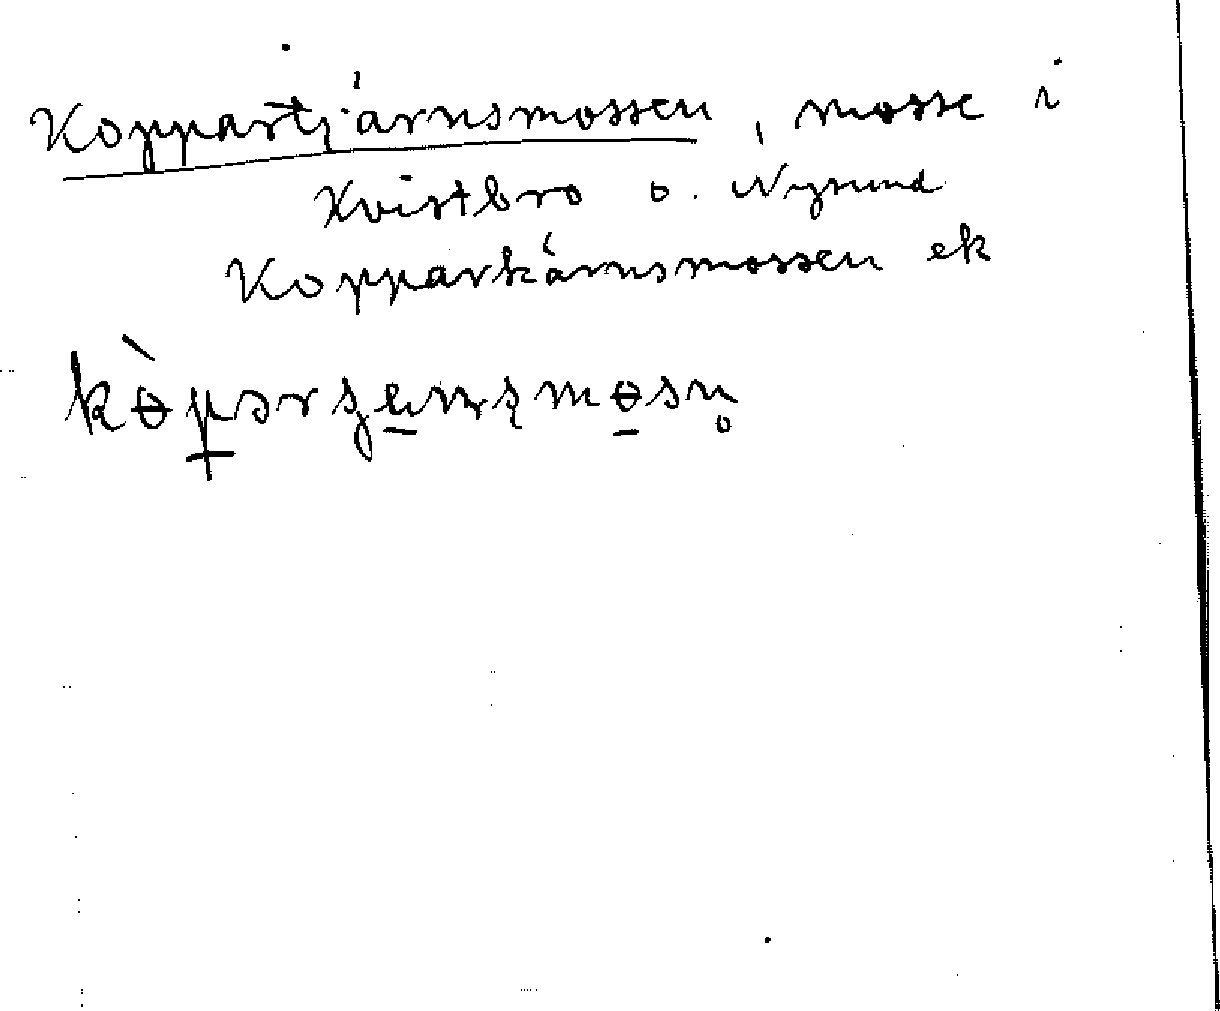 Koppartjärnsmossen, mosse i
Kvistbro o. Nysund
Kopparkärnsmossen ek